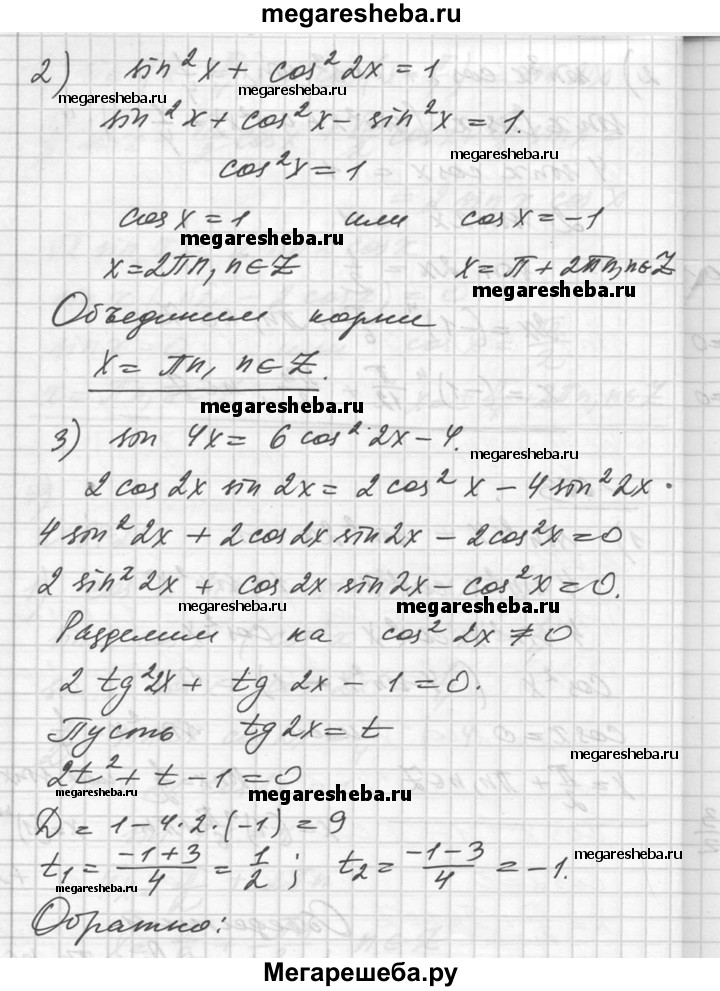 megaresheba.ru
2) sin²x + cos²2x = 1
megaresheba.ru megaresheba.ru
sin²x + cos²x - sin²x = 1.
megaresheba.ru
cos²x = 1
cos x = 1 или cos x = -1
megaresheba.ru
x = 2πn, n∈Z x = π + 2πn, n∈Z
megaresheba.ru
Объединим корни
x = πn, n∈Z.
megaresheba.ru
3) sin 4x = 6cos²2x - 4.
megaresheba.ru
2cos2x sin2x = 2cos²x - 4sin²2x.
4sin²2x + 2cos2x sin2x - 2cos²x = 0
2sin²2x + cos2x sin2x - cos²x = 0.
megaresheba.ru megaresheba.ru
Разделим на cos²2x ≠ 0
2tg²2x + tg 2x - 1 = 0.
Пусть tg2x = t
megaresheba.ru
2t² + t - 1 = 0
megaresheba.ru megaresheba.ru
D = 1 - 4·2·(-1) = 9
t₁ = (-1+3)/4 = 1/2 ; t₂ = (-1-3)/4 = -1.
megaresheba.ru megaresheba.ru
Обратно:
Мегарешеба.ру